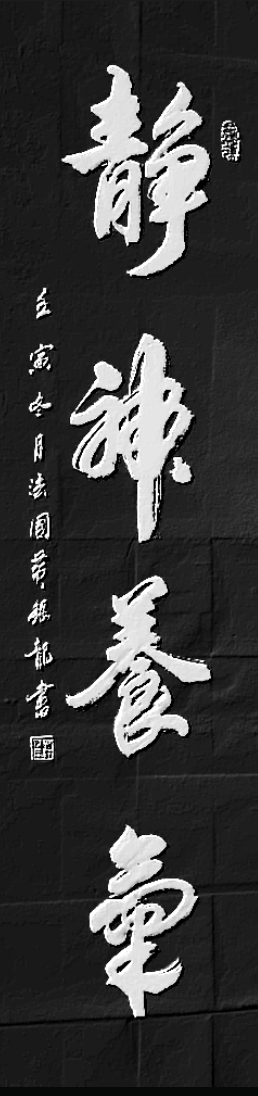 靜神養氣
壬寅冬月法國黄振龍書